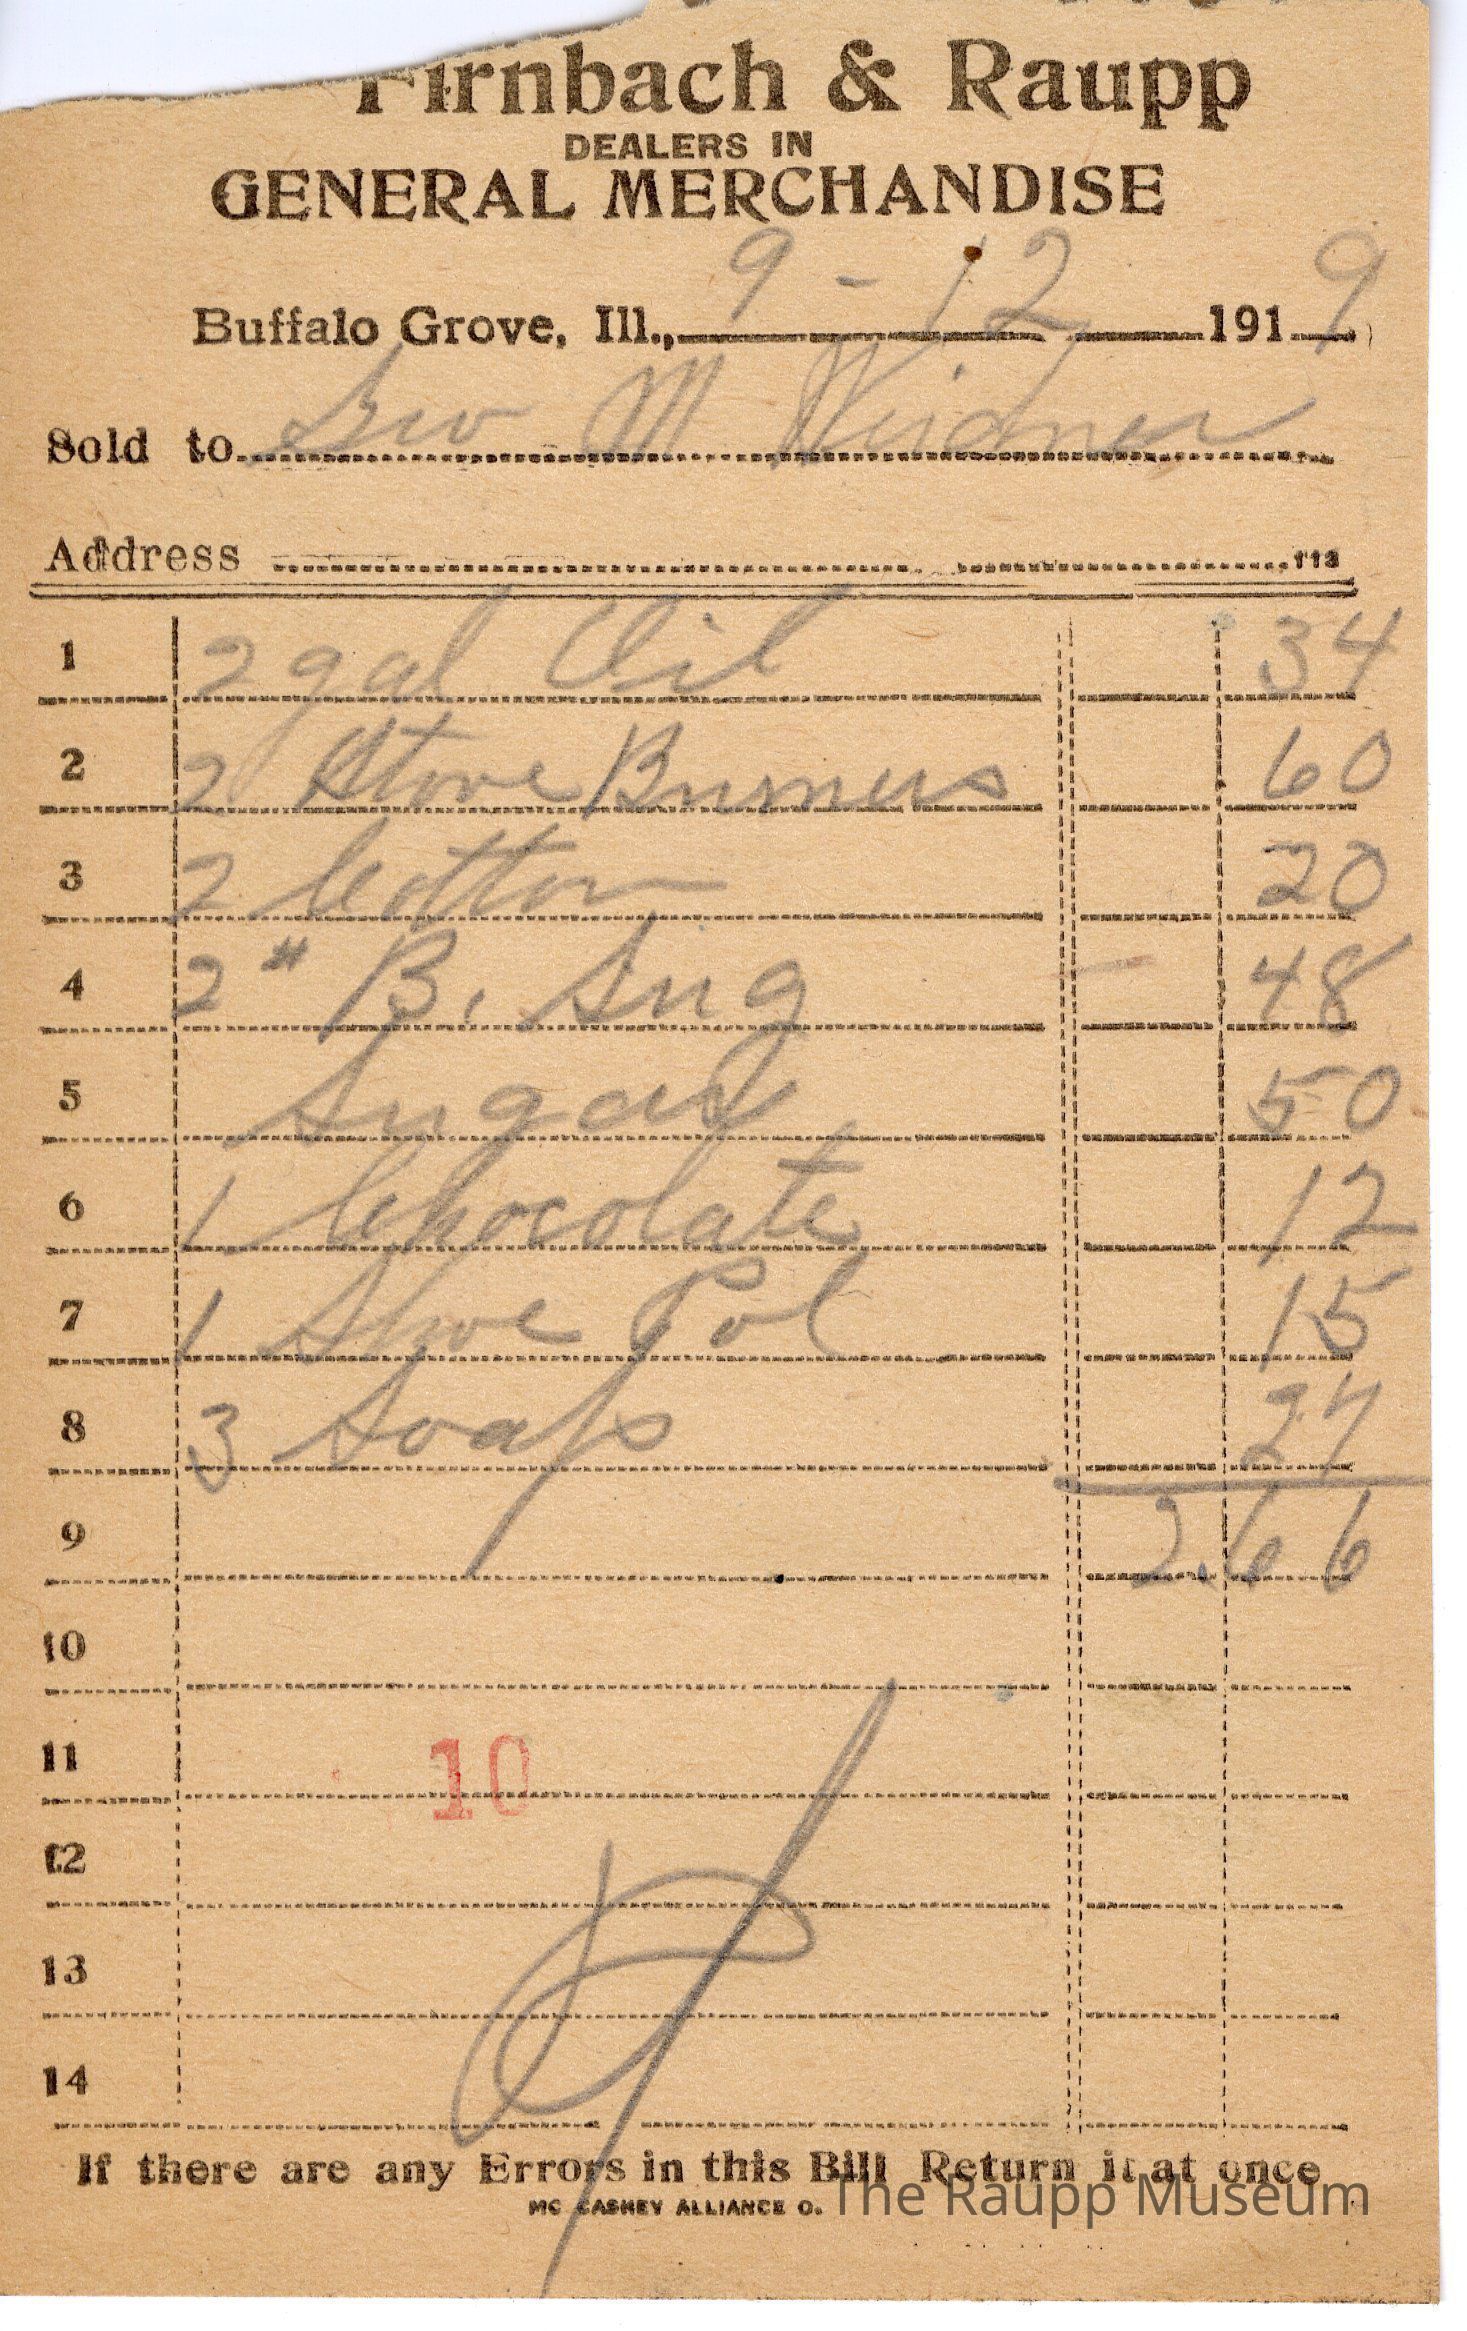 Firnbach & Raupp
DEALERS IN
GENERAL MERCHANDISE
Buffalo Grove, Ill., 9 - 12 1919
Sold to Geo M Weidner
Address 113
1 2 gal Oil 34
2 2 Stove Burners 60
3 2 Cotton 20
4 2 # B. Sug 48
5 Sugar 50
6 1 Chocolate 12
7 1 Shoe Pol 15
8 3 Soaps 27
9 2.66
10
11 10
12
13
14
If there are any Errors in this Bill Return it at once
MC CASKEY ALLIANCE O.
The Raupp Museum